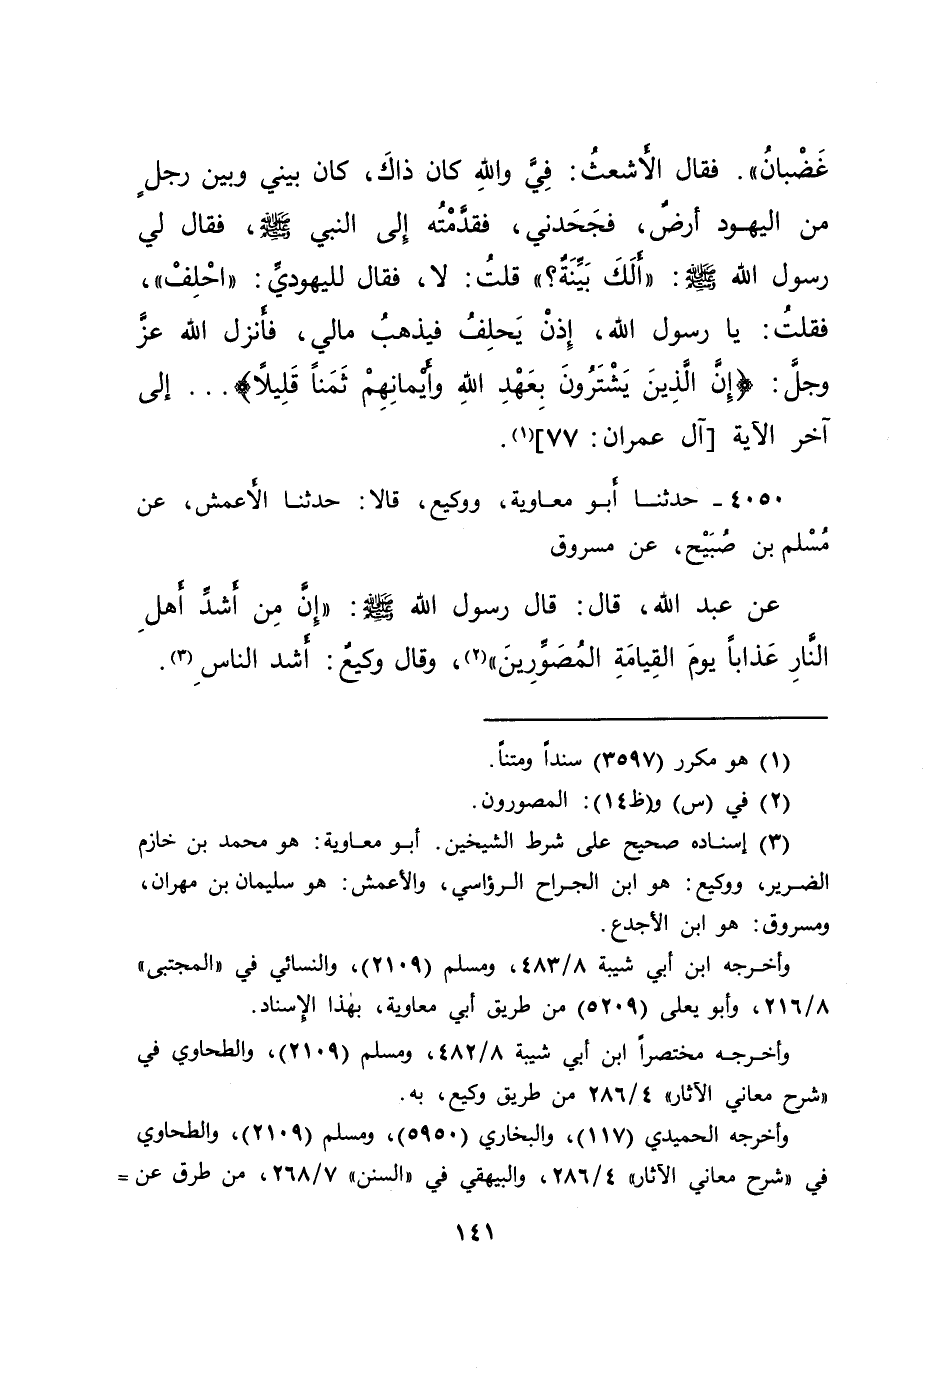 غَضْبانُ». فقال الأَشعثُ: فِيَّ واللهِ كان ذاكَ، كان بيني وبين رجلٍ
من اليهود أرضٌ، فجَحَدني، فقدَّمْتُه إِلى النبي ﷺ، فقال لي
رسول الله ﷺ: «أَلَكَ بَيِّنَةٌ؟» قلتُ: لا، فقال لليهوديِّ: «احْلِفْ»،
فقلتُ: يا رسول الله، إِذنْ يَحلِفُ فيذهبُ مالي، فأَنزل الله عزَّ
وجلَّ: ﴿إِنَّ الَّذِينَ يَشْتَرُونَ بِعَهْدِ اللهِ وأَيْمانِهِمْ ثَمَناً قَلِيلًا﴾... إلى
آخر الآية [آل عمران: ٧٧]⁽١⁾.
٤٠٥٠ ـ حدثنا أَبو معاوية، ووكيع، قالا: حدثنا الأَعمش، عن
مُسْلم بن صُبَيْح، عن مسروق
عن عبد الله، قال: قال رسول الله ﷺ: «إِنَّ مِن أَشدِّ أَهلِ
النَّارِ عَذاباً يومَ القِيامَةِ المُصَوِّرِينَ»⁽٢⁾، وقال وكيعٌ: أَشد الناسِ⁽٣⁾.
(١) هو مكرر (٣٥٩٧) سنداً ومتناً.
(٢) في (س) و(ظ١٤): المصورون.
(٣) إسناده صحيح على شرط الشيخين. أبو معاوية: هو محمد بن خازم
الضرير، ووكيع: هو ابن الجراح الرؤاسي، والأعمش: هو سليمان بن مهران،
ومسروق: هو ابن الأجدع.
وأخرجه ابن أبي شيبة ٤٨٣/٨، ومسلم (٢١٠٩)، والنسائي في «المجتبى»
٢١٦/٨، وأبو يعلى (٥٢٠٩) من طريق أبي معاوية، بهٰذا الإِسناد.
وأخرجه مختصراً ابن أبي شيبة ٤٨٢/٨، ومسلم (٢١٠٩)، والطحاوي في
«شرح معاني الآثار» ٢٨٦/٤ من طريق وكيع، به.
وأخرجه الحميدي (١١٧)، والبخاري (٥٩٥٠)، ومسلم (٢١٠٩)، والطحاوي
في «شرح معاني الآثار» ٢٨٦/٤، والبيهقي في «السنن» ٢٦٨/٧، من طرق عن =
١٤١